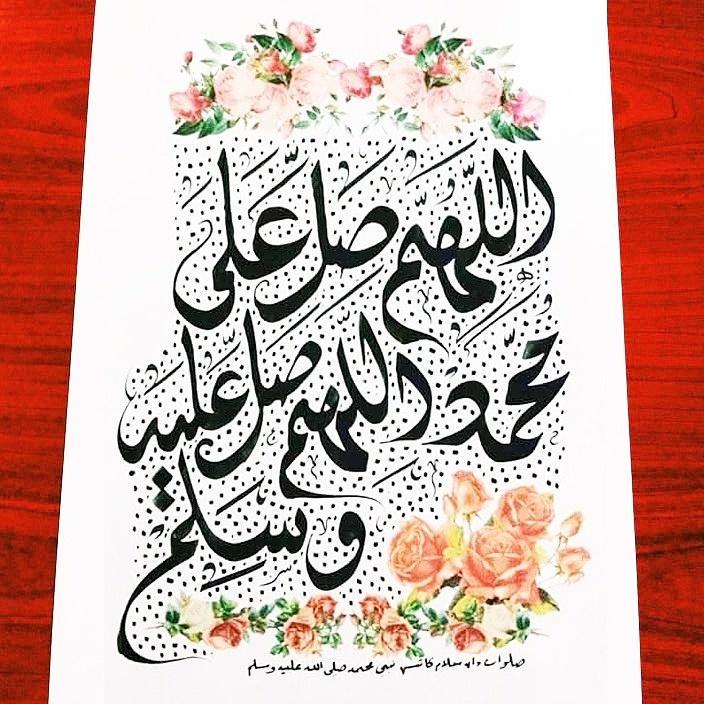 اللّهمّ صلّ على
محمّد اللّهمّ صلّ عليه
وسلّم
صلوات دان سلام كاتس نبي محمد صلى الله عليه وسلم